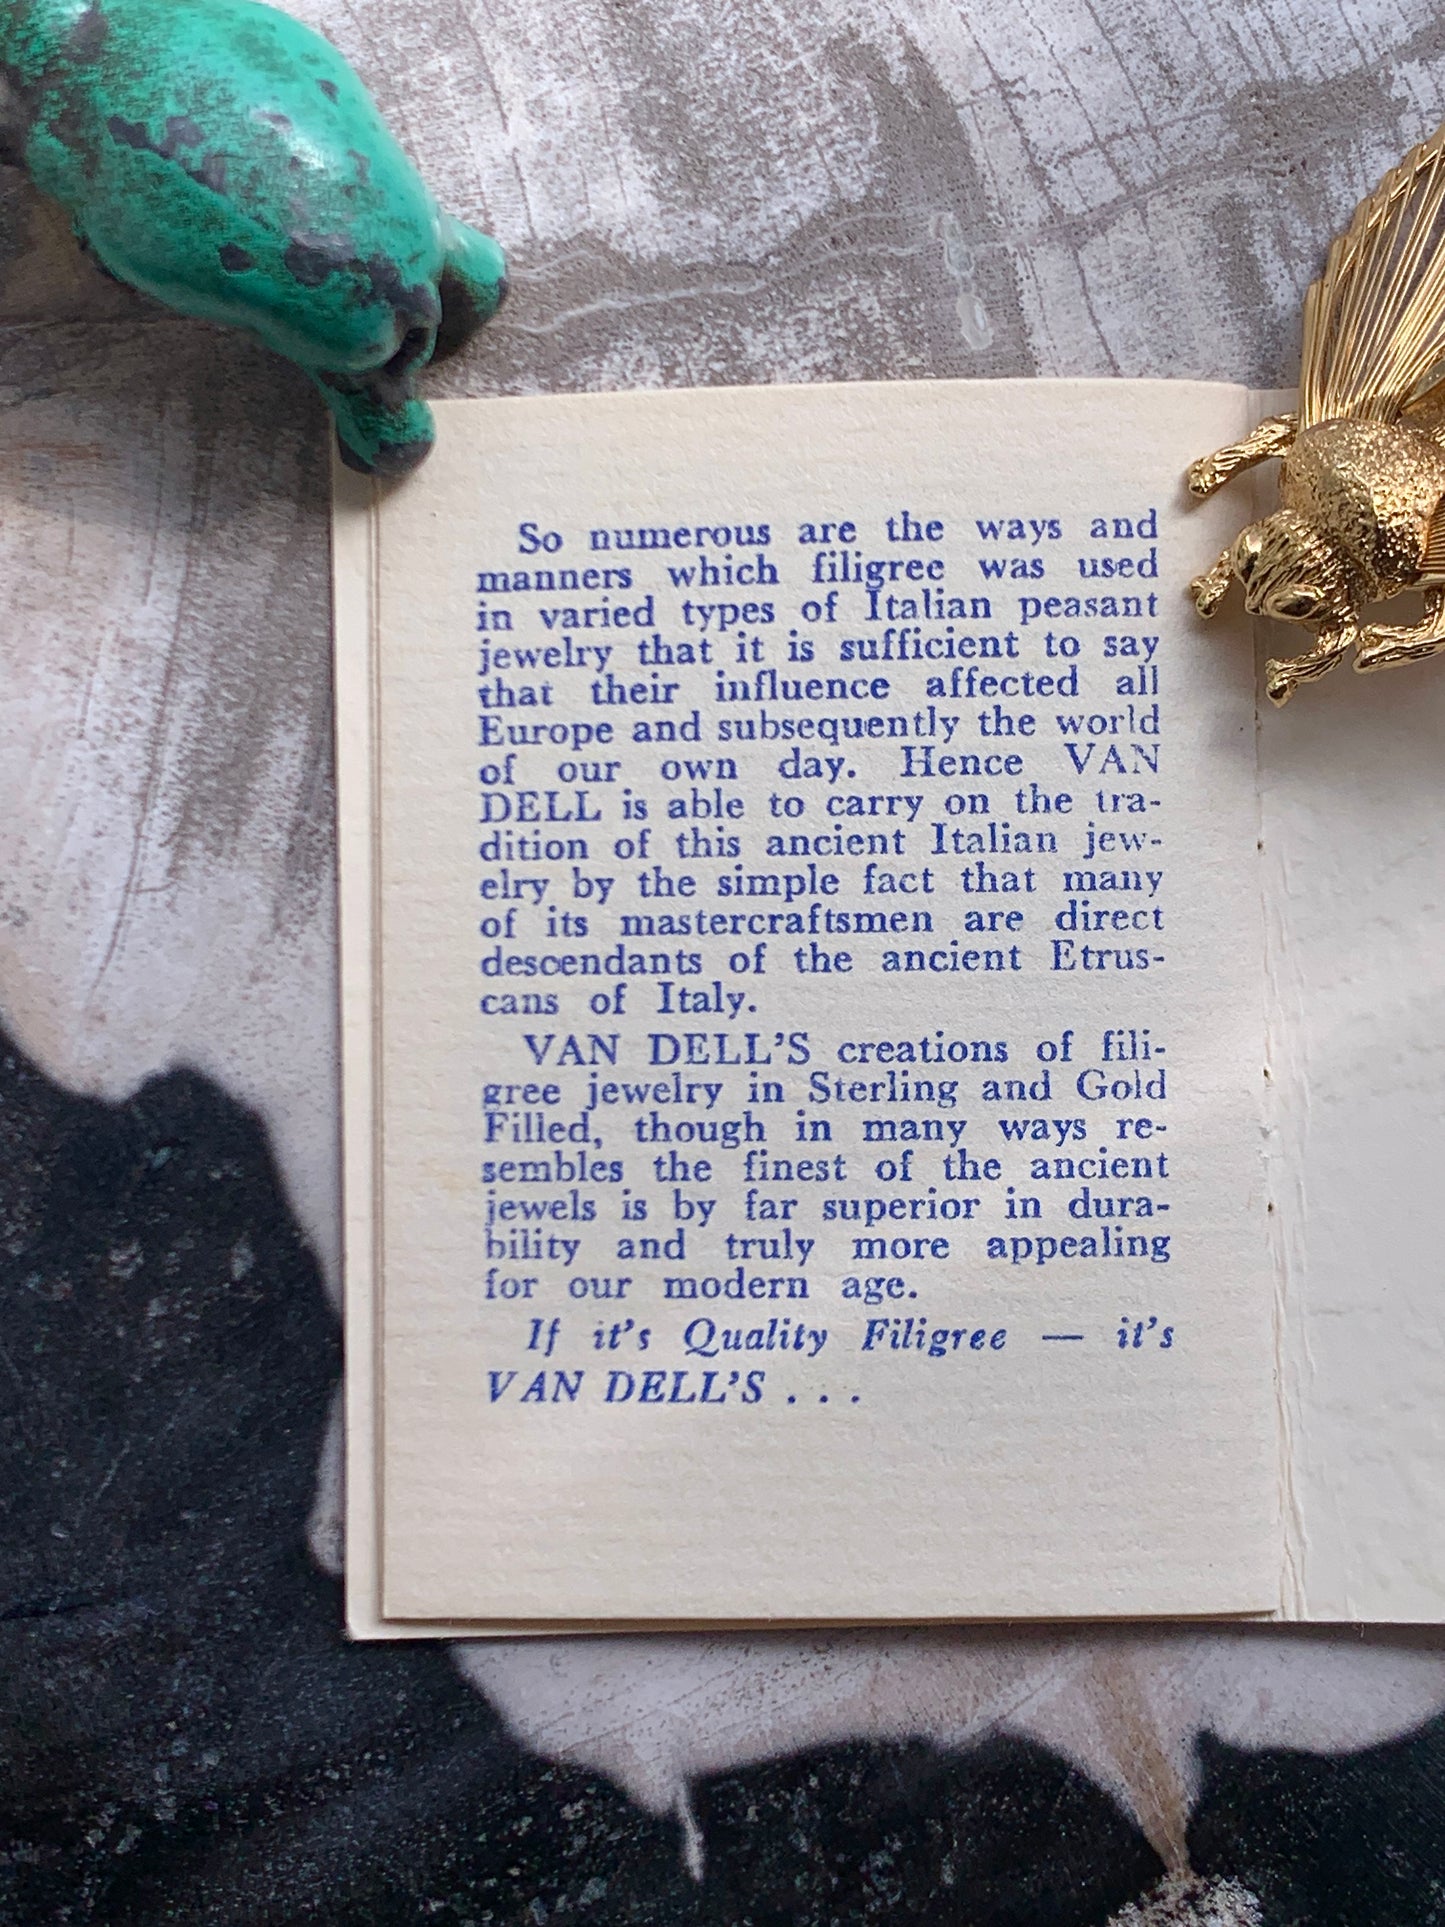 So numerous are the ways and
manners which filigree was used
in varied types of Italian peasant
jewelry that it is sufficient to say
that their influence affected all
Europe and subsequently the world
of our own day. Hence VAN
DELL is able to carry on the tra-
dition of this ancient Italian jew-
elry by the simple fact that many
of its mastercraftsmen are direct
descendants of the ancient Etrus-
cans of Italy.
VAN DELL'S creations of fili-
gree jewelry in Sterling and Gold
Filled, though in many ways re-
sembles the finest of the ancient
jewels is by far superior in dura-
bility and truly more appealing
for our modern age.
If it's Quality Filigree — it's
VAN DELL'S . . .